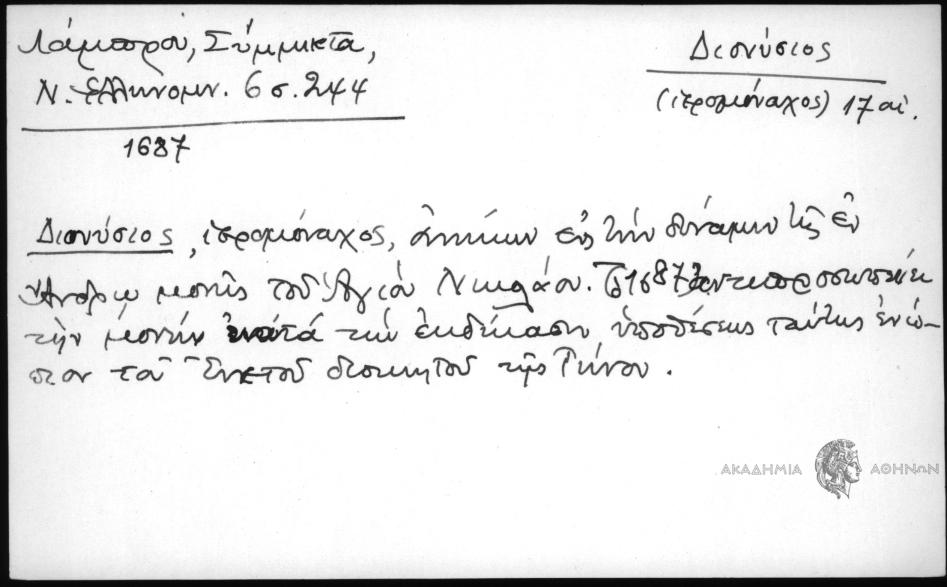 Λάμπρου, Σύμμικτα,
Ν. Ἑλληνομν. 6 σ. 244
1687
Διονύσιος
(ἱερομόναχος) 17 αἰ.
Διονύσιος, ἱερομόναχος, ἀνήκων εἰς τὴν δύναμιν τῆς ἐν
Ἄνδρῳ μονῆς τοῦ Ἁγίου Νικολάου. Τὸ 1687 ἀντιπροσωπεύει
τὴν μονὴν κατὰ τὴν ἐκδίκασιν ὑποθέσεως ταύτης ἐνώ-
πιον τοῦ διοικητοῦ τῆς Τήνου.
ΑΚΑΔΗΜΙΑ ΑΘΗΝΩΝ